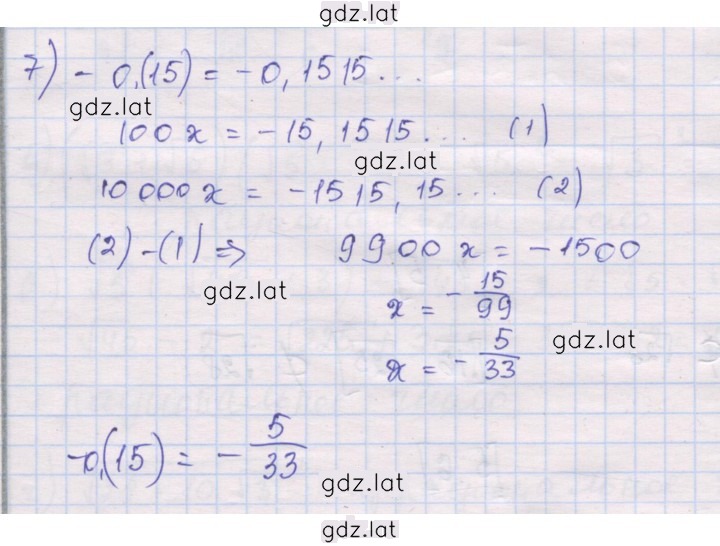 gdz.lat
7) - 0,(15) = -0,1515...
gdz.lat
100x = -15,1515... (1)
gdz.lat
10000x = -1515,15... (2)
(2)-(1) ⇒ 9900x = -1500
gdz.lat
x = -15/99
gdz.lat
x = -5/33
-0,(15) = -5/33
gdz.lat
gdz.lat